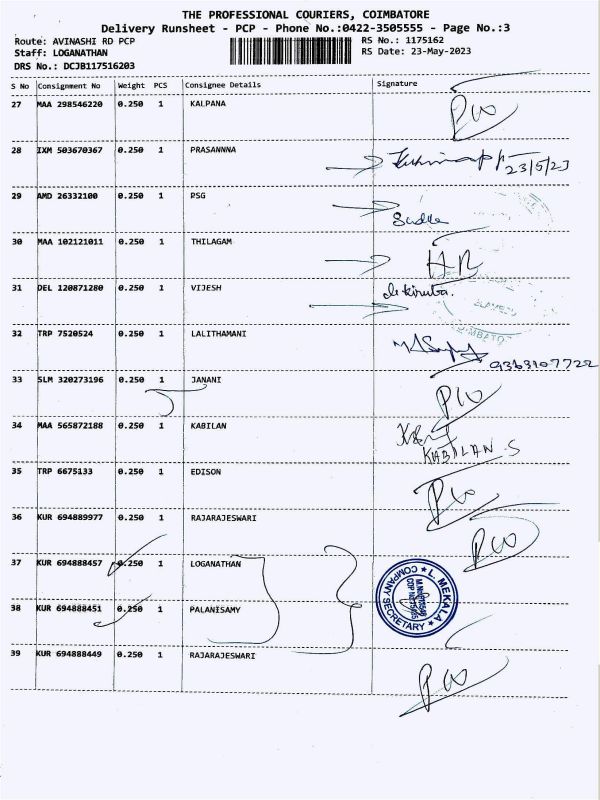 THE PROFESSIONAL COURIERS, COIMBATORE
Delivery Runsheet - PCP - Phone No.:0422-3505555 - Page No.:3
Route: AVINASHI RD PCP RS No.: 1175162
Staff: LOGANATHAN RS Date: 23-May-2023
DRS No.: DCJB117516203
S No Consignment No Weight PCS Consignee Details Signature
27 MAA 298546220 0.250 1 KALPANA
28 IXM 503670367 0.250 1 PRASANNNA
23/5/23
29 AMD 26332100 0.250 1 PSG
30 MAA 102121011 0.250 1 THILAGAM
31 DEL 120871280 0.250 1 VIJESH
32 TRP 7520524 0.250 1 LALITHAMANI
9363107722
33 SLM 320273196 0.250 1 JANANI
34 MAA 565872188 0.250 1 KABILAN
KABILAN S
35 TRP 6675133 0.250 1 EDISON
36 KUR 694889977 0.250 1 RAJARAJESWARI
37 KUR 694888457 0.250 1 LOGANATHAN
L. MEKALA
COMPANY SECRETARY
38 KUR 694888451 0.250 1 PALANISAMY
39 KUR 694888449 0.250 1 RAJARAJESWARI